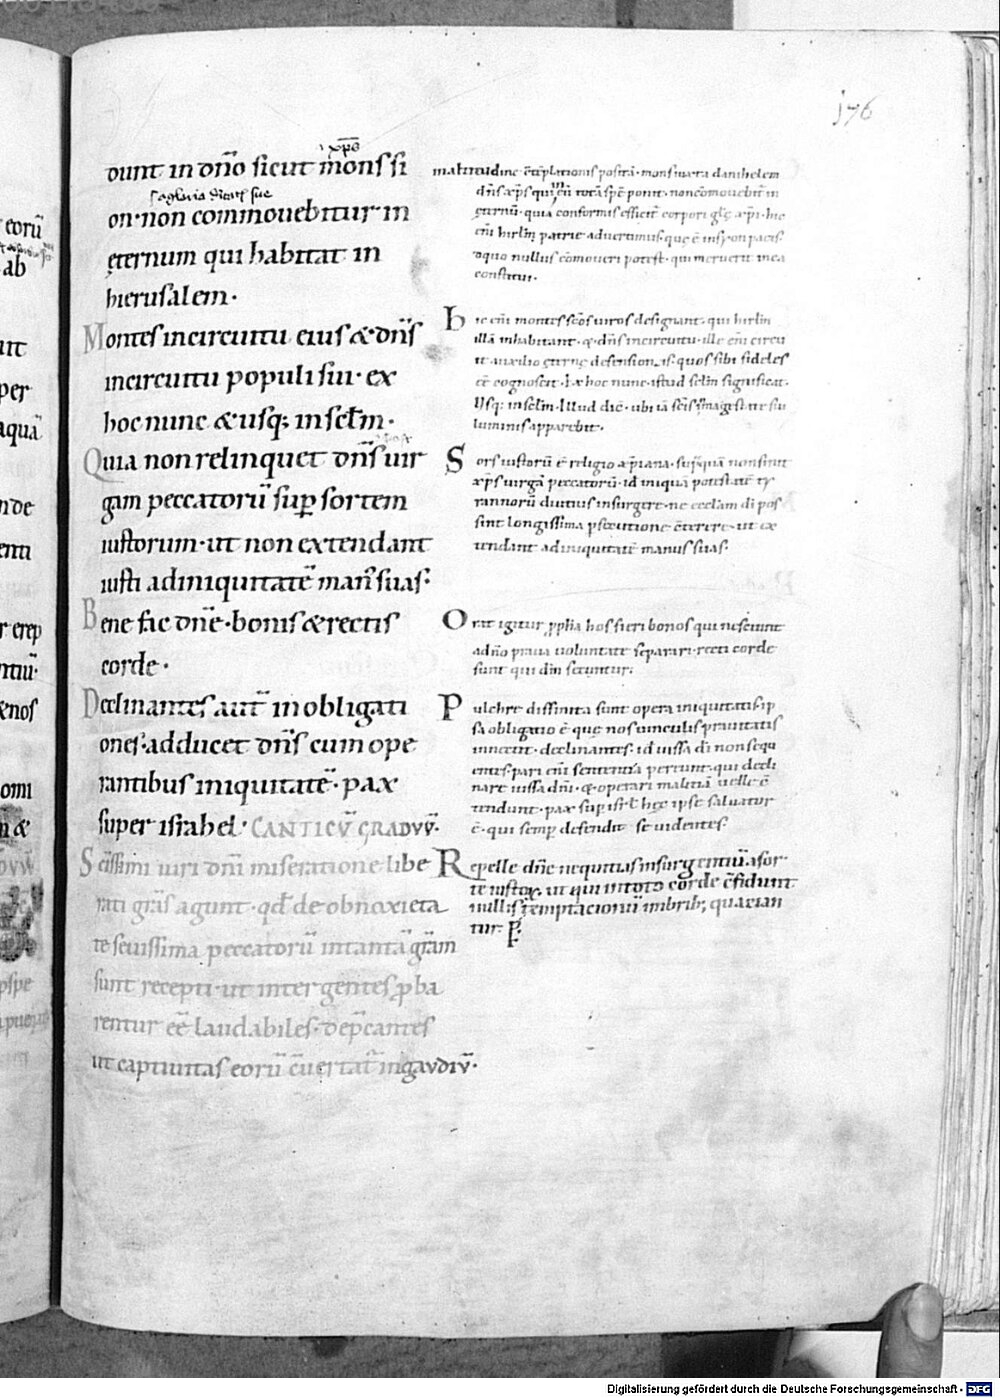 176
xp̄s
dunt in dn̄o sicut mons si
s. a gloria
on· non commouebitur in
ęternum qui habitat in
hierusalem·
Montes incircuitu eius & dn̄s
incircuitu populi sui· ex
hoc nunc & usq; insc̄lm·
Quia non relinquet dn̄s uir
gam peccatorū sup sortem
iustorum· ut non extendant
iusti adiniquitatē man' suas·
Bene fac dn̄e· bonis & rectis
corde·
Declinantes aut̄ in obligati
ones· adducet dn̄s cum ope
rantibus iniquitatē· pax
super israhel· CANTICV̄ GRADVV̄·
Sc̄issimi uiri dn̄i miseratione libe
rati grās agunt· qd̄ de obnoxieta
te seuissima peccatorū intantā grām
sunt recepti· ut inter gentes ꝓba
rentur eē laudabiles· dep̄cantes
ut captiuitas eorū c̄uertat̄ ingaudiū·
inaltitudine c̄tēplationis posita· mons
dn̄s xp̄s qui totā spē ponit· non cōmouebit̄ in
ęternū· quia conformis efficit̄ corpori glę xp̄i· hic
eni hirlm̄ patrie aduertimus· quę ē pacis·
aquo nullus cōmoueri potest· qui meruerit inea
constitui·
Hic eni montes sc̄os uiros designant· qui hirlm̄
illā inhabitant· & dn̄s incircuitu· ille eni circu
it auxilio ęternę defensionis· quos sibi fideles
eē cognoscit· Ex hoc nunc· istud sclm̄ significat·
Usq; insclm̄· Illud dic̄· ubi iā sc̄is maiestate sui
luminis apparebit·
Sors iustorū ē religio xp̄iana· sup quā non sinit
xp̄s uirgā peccatorū· id iniquā potestatē ty
rannorū diutius insurgere· ne ecclam di pos
sint longissima psecutione c̄terere· ut ex
tendant adiniquitatē manus suas·
Orat igitur ꝓphīa hos fieri bonos qui nesciunt
adn̄o praua uoluntate separari· recti corde
sunt qui dn̄m secuntur·
Pulchre diffinita sunt opera iniquitatis· ip
sa obligatio ē· quę nos uinculis prauitatis
innectit· declinantes· id iussa di non sequ
entes· pari eni sententia pereunt· qui decli
nare iussa dn̄i· & operari malitiā uelle c̄
tendunt· pax sup isrl̄ hęc ipse saluator
ē· qui semp defendit se uidentes·
Repelle dn̄e nequitias insurgentiū asor
te iustoꝝ· ut qui in toto corde c̄fidunt
nullis temptacionū imbrib; quatian
tur· P·
Digitalisierung gefördert durch die Deutsche Forschungsgemeinschaft - DFG